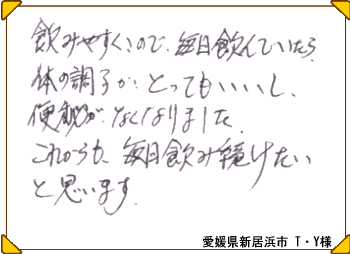 飲みやすくいので、毎日飲んでいたら
体の調子がとってもいいし、
便秘がなくなりました。
これからも、毎日飲み続けたい
と思います。
愛媛県新居浜市 T・Y様